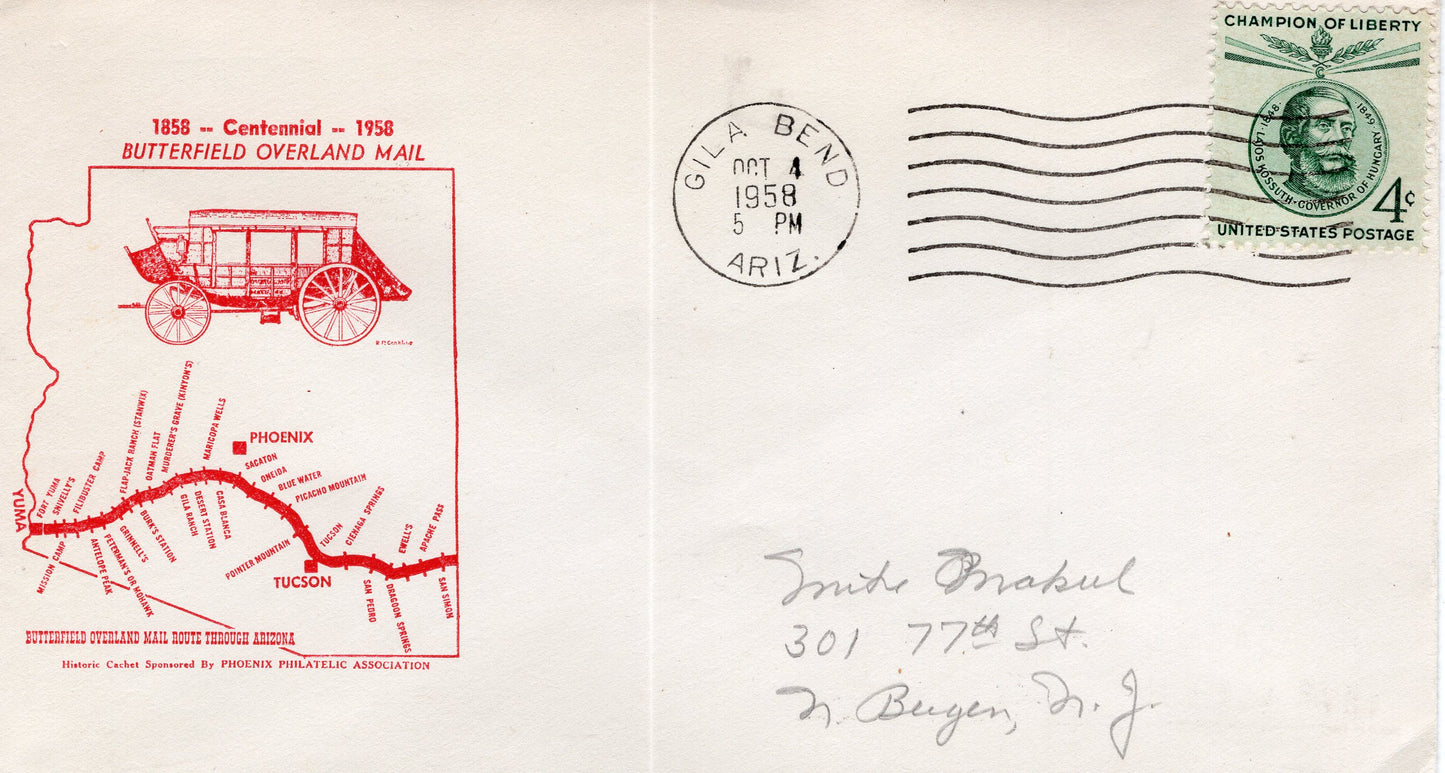 1858 -- Centennial -- 1958
BUTTERFIELD OVERLAND MAIL
PHOENIX
YUMA
FORT YUMA
SNIVELLY'S
FILIBUSTER CAMP
FLAP-JACK RANCH (STANWIX)
OATMAN FLAT
MURDERER'S GRAVE (KINYON'S)
MARICOPA WELLS
SACATON
ONEIDA
BLUE WATER
PICACHO MOUNTAIN
TUCSON
CIENAGA SPRINGS
EWELL'S
APACHE PASS
MISSION CAMP
ANTELOPE PEAK
PETERMAN'S OR MOHAWK
GRINNELL'S
BURK'S STATION
GILA RANCH
DESERT STATION
CASA BLANCA
POINTER MOUNTAIN
TUCSON
SAN PEDRO
DRAGOON SPRINGS
SAN SIMON
BUTTERFIELD OVERLAND MAIL ROUTE THROUGH ARIZONA
Historic Cachet Sponsored By PHOENIX PHILATELIC ASSOCIATION
GILA BEND
OCT 4
1958
5 PM
ARIZ.
CHAMPION OF LIBERTY
1848-1849
LAJOS KOSSUTH-GOVERNOR OF HUNGARY
4¢
UNITED STATES POSTAGE
Mike
301 77th St.
N. Bergen, N. J.